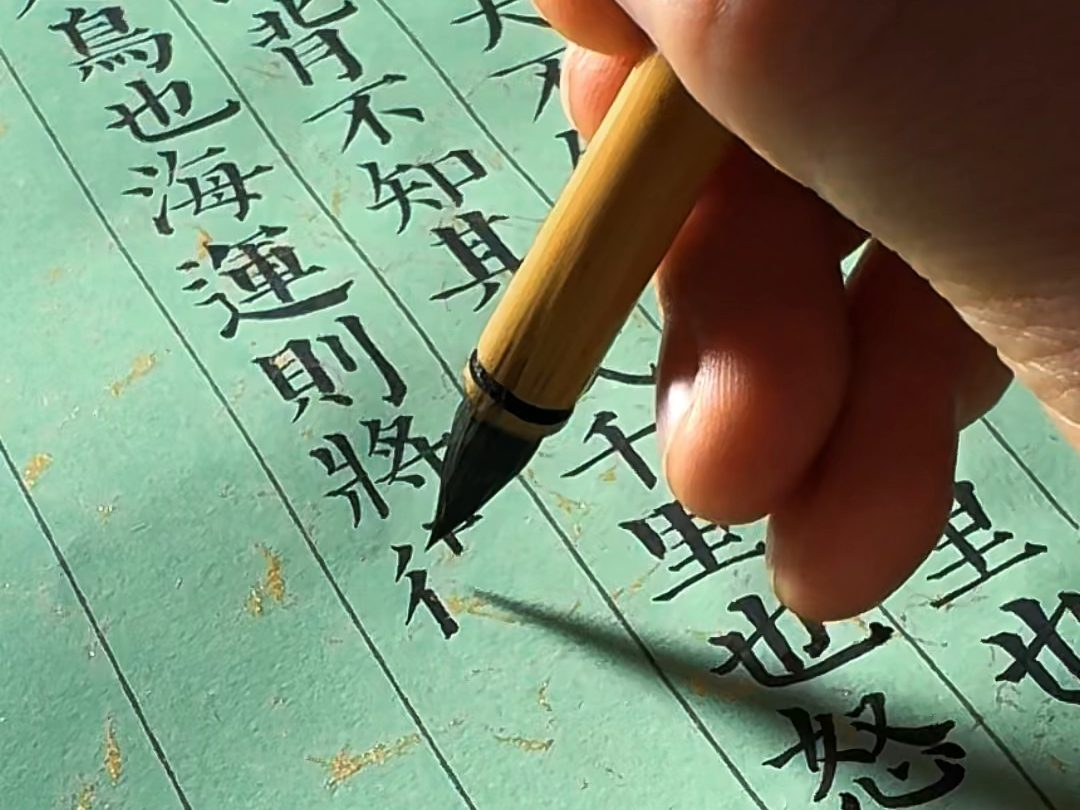 里也
背不知其千里也怒
鳥也海運則將